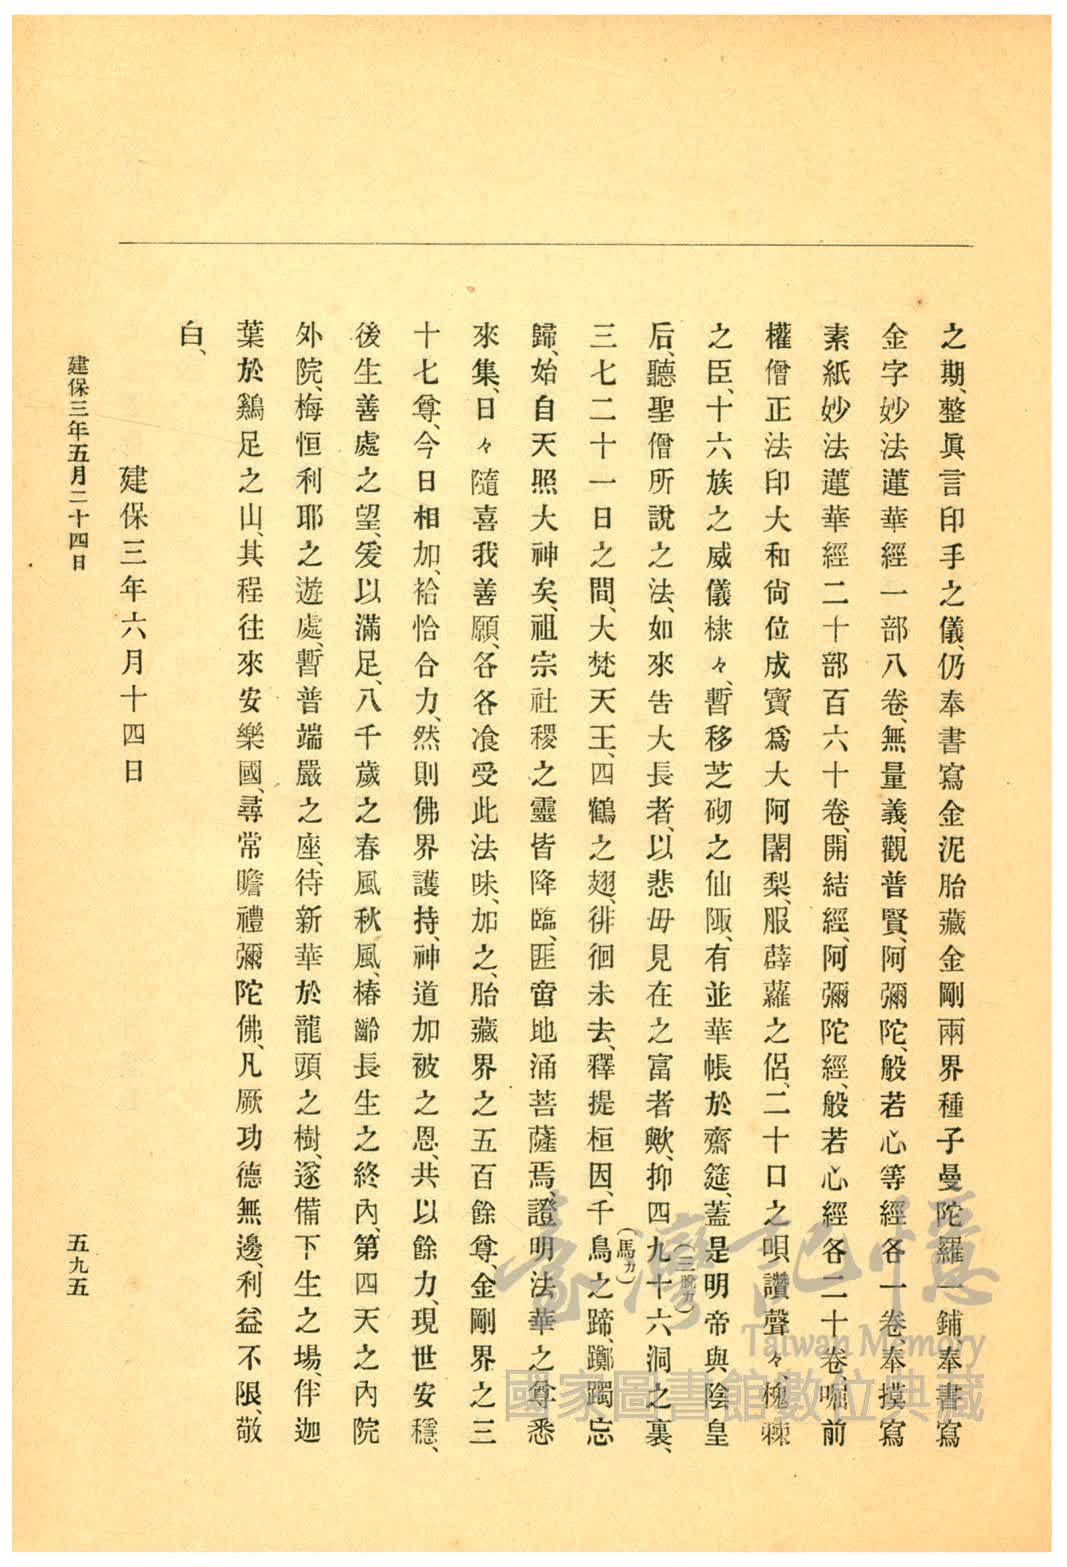 之期、整眞言印手之儀、仍奉書寫金泥胎藏金剛兩界種子曼陀羅一鋪奉書寫
金字妙法蓮華經一部八卷、無量義、觀普賢、阿彌陀、般若心等經各一卷、奉摸寫
素紙妙法蓮華經二十部百六十卷、開結經、阿彌陀經、般若心經各二十卷、啒前
權僧正法印大和尙位成寶爲大阿闍梨、服薜蘿之侶、二十口之唄讚聲々槐棘
之臣、十六族之威儀棣々、暫移芝砌之仙陬、有並華帳於齋筵、蓋是明帝與陰皇
后、聽聖僧所說之法、如來吿大長者、以悲毋見在之富者歟、抑四九十六洞之裏、
(三脫カ)
三七二十一日之間、大梵天王、四鶴之翅、徘徊未去、釋提桓因、千鳥之蹄、躑躅忘
(馬カ)
歸、始自天照大神矣、祖宗社稷之靈皆降臨、匪啻地涌菩薩焉、證明法華之尊悉
來集、日々隨喜我善願、各各飡受此法味、加之、胎藏界之五百餘尊、金剛界之三
十七尊、今日相加、袷恰合力、然則佛界護持、神道加被之恩、共以餘力、現世安穩、
後生善處之望、爰以滿足、八千歲之春風秋風、椿齡長生之終內、第四天之內院
外院、梅恒利耶之遊處、暫普端嚴之座、待新華於龍頭之樹、遂備下生之場、伴迦
葉於鷄足之山、其程往來安樂國、尋常瞻禮彌陀佛、凡厥功德無邊、利益不限、敬
白、
建保三年六月十四日
建保三年五月二十四日
五九五
臺灣記憶
Taiwan Memory
國家圖書館數位典藏